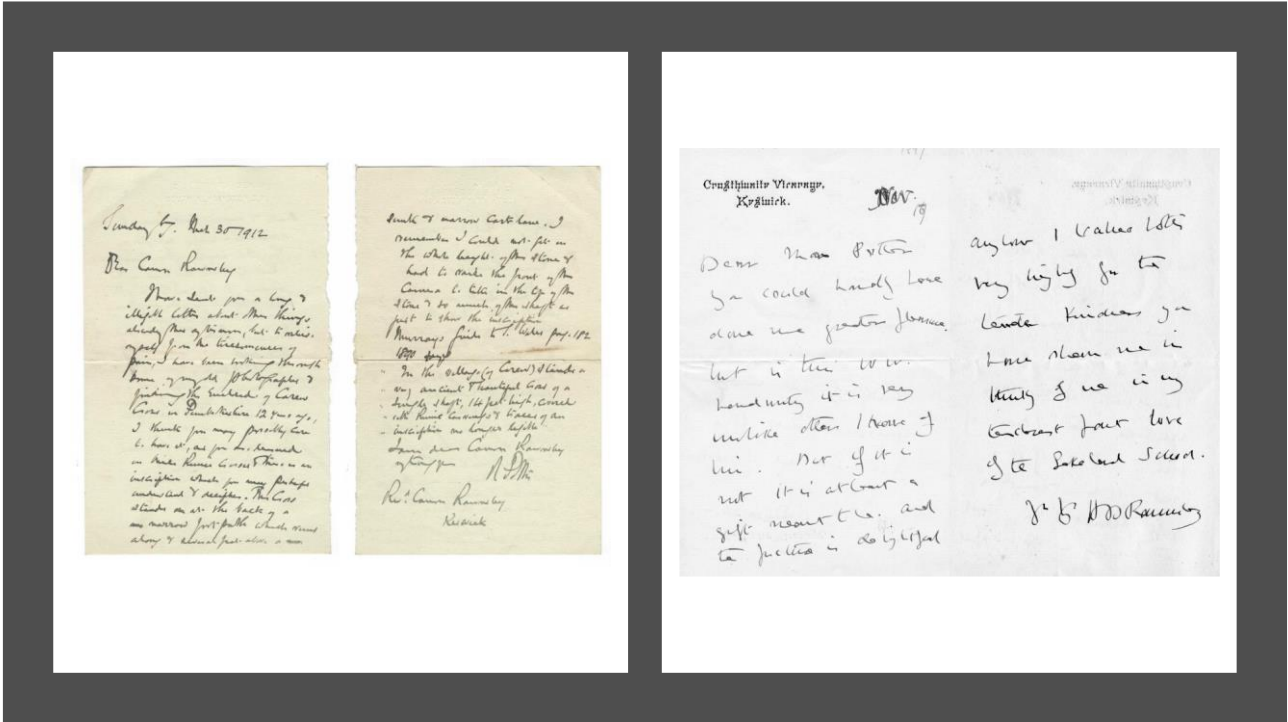 Sunday
30 1912
Dear Canon Rawnsley
I have sent you a long &
illegible letter about other things
already this afternoon, but to relieve
myself from the tiresomeness of
pain, I have been looking through
some of my old photographs &
finding the enclosed of Carew
Cross in Pembrokeshire 12 years ago,
I think you may possibly care
to have it, as you are interested
in these Runic Crosses & there is an
inscription which you may perhaps
understand & decipher. This Cross
stands on at the back of a
narrow foot path which runs
along & several feet above a
& narrow Cart lane. I
remember I could not get in
the whole height of the stone &
had to raise the front of the
Camera to take in the top of the
stone & so much of the shaft as
just to show the inscription
Murray's Guide to S. Wales page 182
1890
" In the village (of Carew) stands a
" very ancient & beautiful Cross of a
" single shaft, 14 feet high, covered
" with Runic carvings & traces of an
" inscription no longer legible.
I am dear Canon Rawnsley
Revd. Canon Rawnsley
Keswick
Crosthwaite Vicarage,
Keswick.
Nov.
19
Dear
you could hardly have
done me greater
but is this W.W.
handwriting it is very
unlike others I know of
his. But if it is
not it is at least a
gift meant to be and
the picture is delightful
anyhow I value both
very highly for the
tender kindness you
have shown me in
thinking of me in my
love
of the Lakeland School.
HD Rawnsley